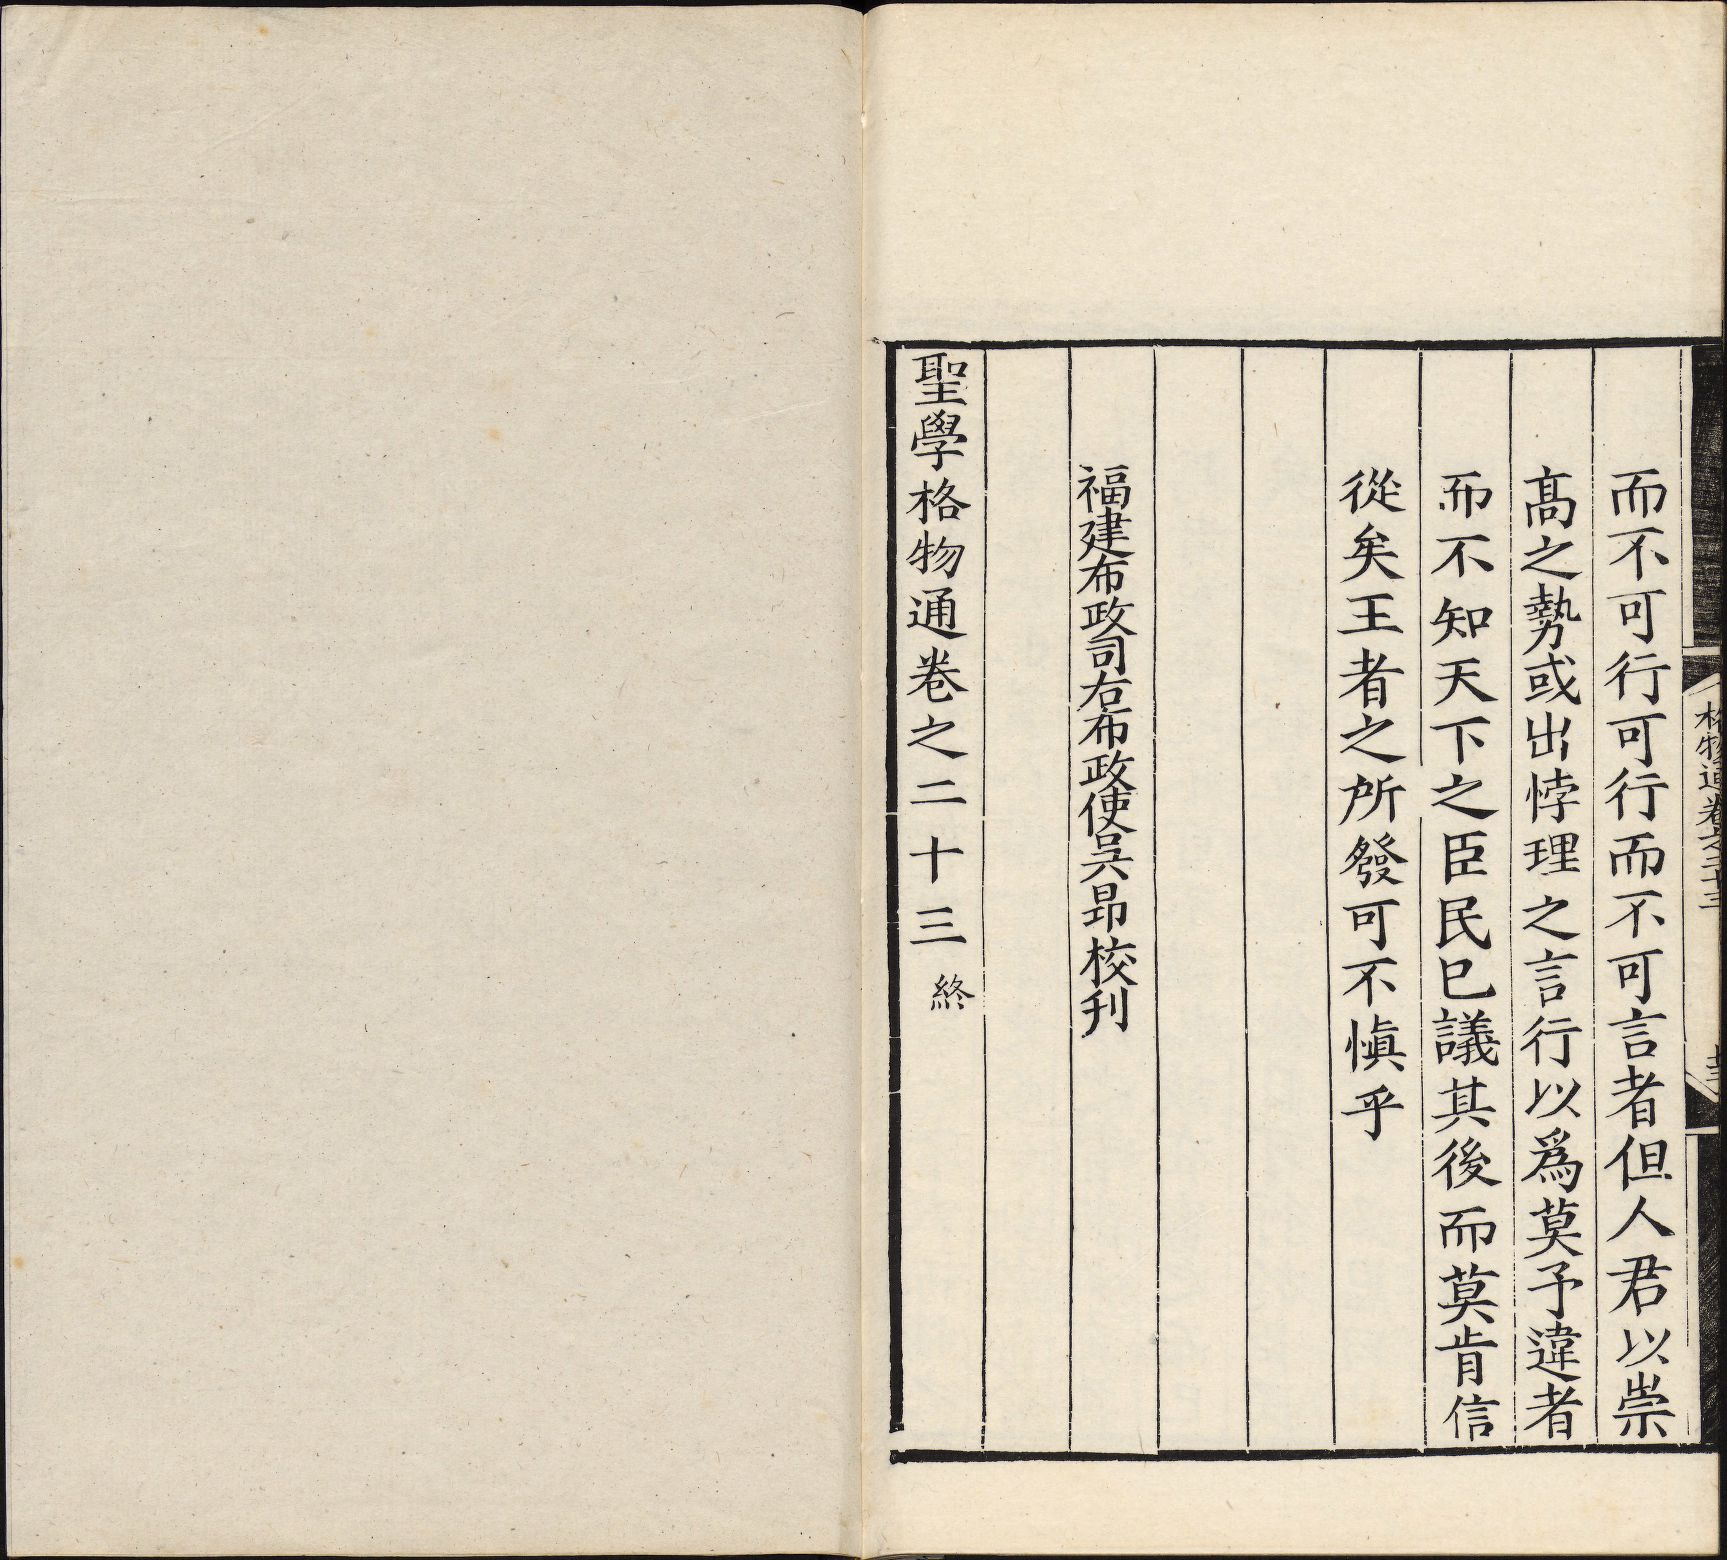 而不可行可行而不可言者但人君以崇
髙之勢或出悖理之言行以爲莫予違者
而不知天下之臣民已議其後而莫肯信
從矣王者之所發可不愼乎
福建布政司右布政使吳昻校刊
聖學格物通卷之二十三終
格物通卷之二十三